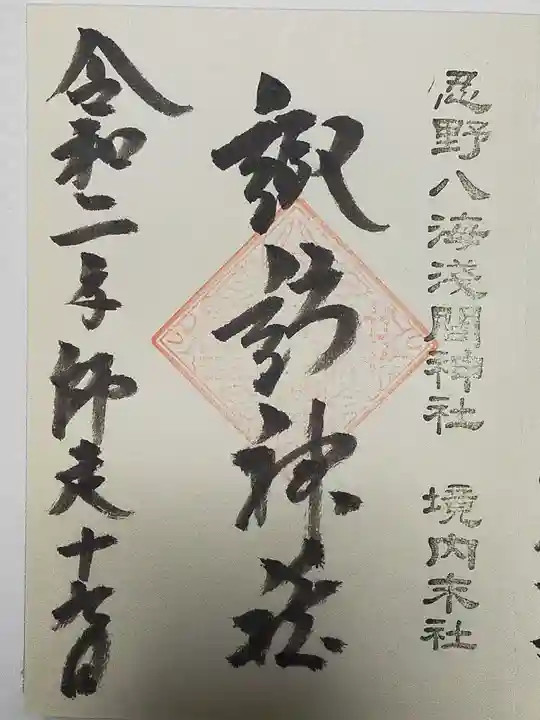 忍野八海淺間神社 境内末社
諏訪神社
令和二年師走十九日